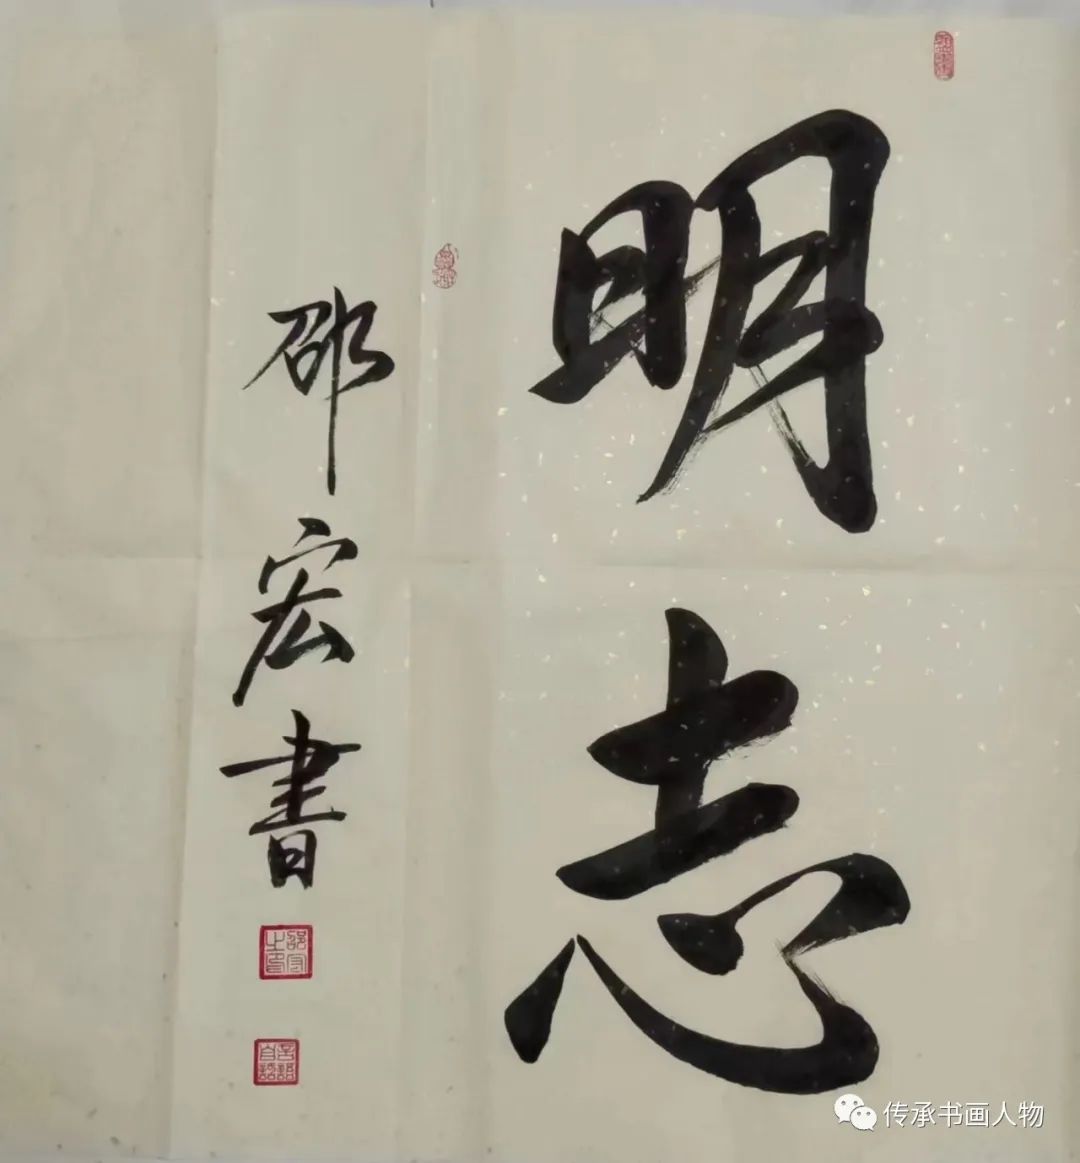 明志
邵宏書
传承书画人物